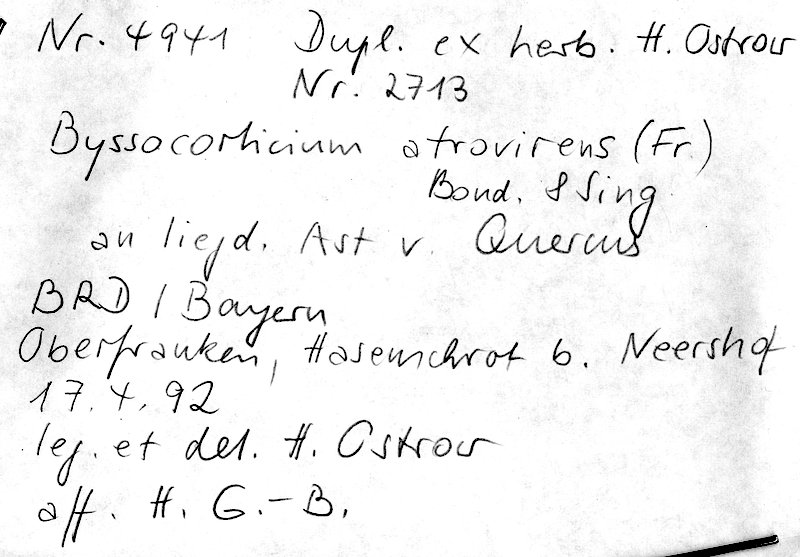 Nr. 4941 Dupl. ex herb. H. Ostrow
Nr. 2713
Byssocorticium atrovirens (Fr.)
Bond. & Sing
an liegd. Ast v. Quercus
BRD / Bayern
Oberfranken, Hasenschrot b. Neershof
17.4.92
leg. et det. H. Ostrow
aff. H. G.-B.